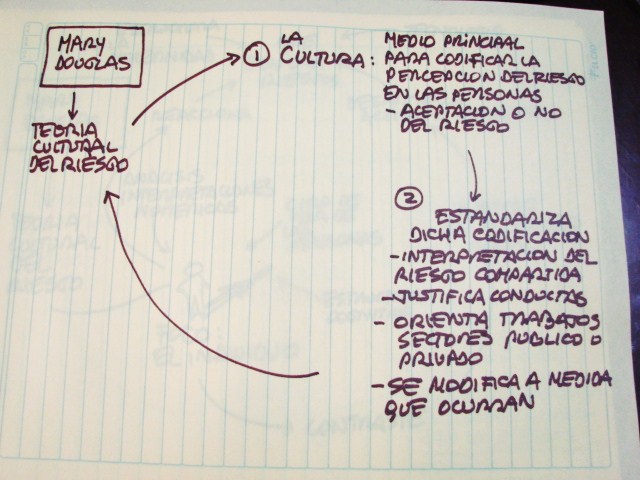 MARY
DOUGLAS
TEORIA
CULTURAL
DEL RIESGO
1 LA
CULTURA:
MEDIO PRINCIPAL
PARA CODIFICAR LA
PERCEPCION DEL RIESGO
EN LAS PERSONAS
- ACEPTACION O NO
DEL RIESGO
2
ESTANDARIZA
DICHA CODIFICACION
- INTERPRETACION DEL
RIESGO COMPARTIDA
- JUSTIFICA CONDUCTAS
- ORIENTA TRABAJOS
SECTORES PUBLICO O
PRIVADO
- SE MODIFICA A MEDIDA
QUE OCURRAN